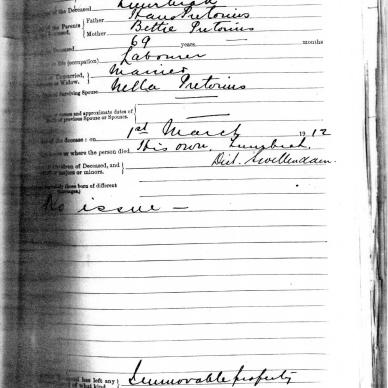 of the Deceased
of the Parents Father Hans Pretorius
Deceased Mother Bettie Pretorius
Deceased 69 years. months
in life (occupation) Labourer
Unmarried, Married
or Widow.
Surviving Spouse Nella Pretorius
names and approximate dates of
of previous Spouse or Spouses.
of the decease : on 1st March 1912
house or where the person died. His own,
Dist. Swellendam.
Children of Deceased, and
majors or minors.
those born of different
marriages.)
No issue —
has left any Immovable property
of what kind